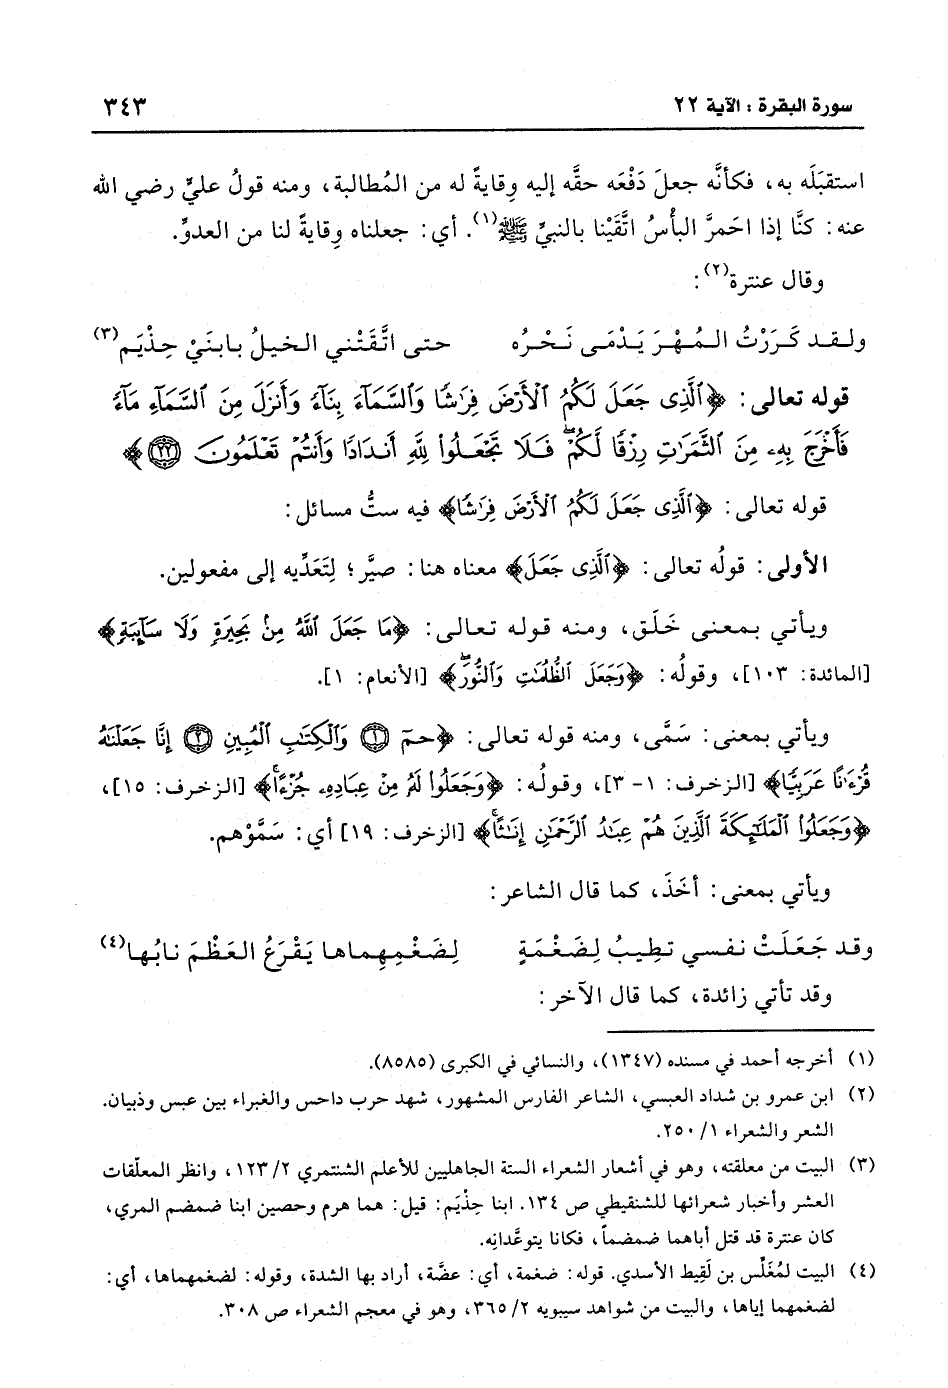 سورة البقرة : الآية ٢٢ ٣٤٣
استقبلَه به، فكأنَّه جعلَ دَفْعَه حقَّه إليه وِقايةً له من المُطالبة، ومنه قولُ عليٍّ رضي الله
عنه: كنَّا إذا احمرَّ البأْسُ اتَّقَيْنا بالنبيِّ ﷺ(١). أي: جعلناه وِقايةً لنا من العدوِّ.
وقال عنترة(٢):
ولقد كَرَرْتُ المُهْرَ يَدْمَى نَحْرُه حتى اتَّقَتْني الخيلُ بابنَيْ حِذْيَم(٣)
قوله تعالى: ﴿ٱلَّذِى جَعَلَ لَكُمُ ٱلْأَرْضَ فِرَٰشًا وَٱلسَّمَآءَ بِنَآءً وَأَنزَلَ مِنَ ٱلسَّمَآءِ مَآءً
فَأَخْرَجَ بِهِۦ مِنَ ٱلثَّمَرَٰتِ رِزْقًا لَّكُمْ ۖ فَلَا تَجْعَلُوا۟ لِلَّهِ أَندَادًا وَأَنتُمْ تَعْلَمُونَ ۝٢٢﴾
قوله تعالى: ﴿ٱلَّذِى جَعَلَ لَكُمُ ٱلْأَرْضَ فِرَٰشًا﴾ فيه ستُّ مسائل:
الأولى: قولُه تعالى: ﴿ٱلَّذِى جَعَلَ﴾ معناه هنا: صيَّر؛ لِتَعَدِّيه إلى مفعولين.
ويأتي بمعنى خَلَق، ومنه قوله تعالى: ﴿مَا جَعَلَ ٱللَّهُ مِنۢ بَحِيرَةٍ وَلَا سَآئِبَةٍ﴾
[المائدة: ١٠٣]، وقولُه: ﴿وَجَعَلَ ٱلظُّلُمَٰتِ وَٱلنُّورَ ۖ﴾ [الأنعام: ١].
ويأتي بمعنى: سَمَّى، ومنه قوله تعالى: ﴿حمٓ ۝١ وَٱلْكِتَٰبِ ٱلْمُبِينِ ۝٢ إِنَّا جَعَلْنَٰهُ
قُرْءَٰنًا عَرَبِيًّا﴾ [الزخرف: ١- ٣]، وقولُه: ﴿وَجَعَلُوا۟ لَهُۥ مِنْ عِبَادِهِۦ جُزْءًا ۚ﴾ [الزخرف: ١٥]،
﴿وَجَعَلُوا۟ ٱلْمَلَٰٓئِكَةَ ٱلَّذِينَ هُمْ عِبَٰدُ ٱلرَّحْمَٰنِ إِنَٰثًا ۚ﴾ [الزخرف: ١٩] أي: سَمَّوْهم.
ويأتي بمعنى: أخَذَ، كما قال الشاعر:
وقد جَعَلَتْ نفسي تطِيبُ لِضَغْمَةٍ لِضَغْمِهِماها يَقْرَعُ العَظْمَ نابُها(٤)
وقد تأتي زائدة، كما قال الآخر:
(١) أخرجه أحمد في مسنده (١٣٤٧)، والنسائي في الكبرى (٨٥٨٥).
(٢) ابن عمرو بن شداد العبسي، الشاعر الفارس المشهور، شهد حرب داحس والغبراء بين عبس وذبيان.
الشعر والشعراء ١/ ٢٥٠.
(٣) البيت من معلقته، وهو في أشعار الشعراء الستة الجاهليين للأعلم الشنتمري ٢/ ١٢٣، وانظر المعلّقات
العشر وأخبار شعرائها للشنقيطي ص ١٣٤. ابنا حِذْيَم: قيل: هما هرم وحصين ابنا ضمضم المري،
كان عنترة قد قتل أباهما ضمضماً، فكانا يتوعَّدانِه.
(٤) البيت لمُغَلِّس بن لَقِيط الأسدي. قوله: ضغمة، أي: عضَّة، أراد بها الشدة، وقوله: لضغمهماها، أي:
لضغمهما إياها، والبيت من شواهد سيبويه ٢/ ٣٦٥، وهو في معجم الشعراء ص ٣٠٨.